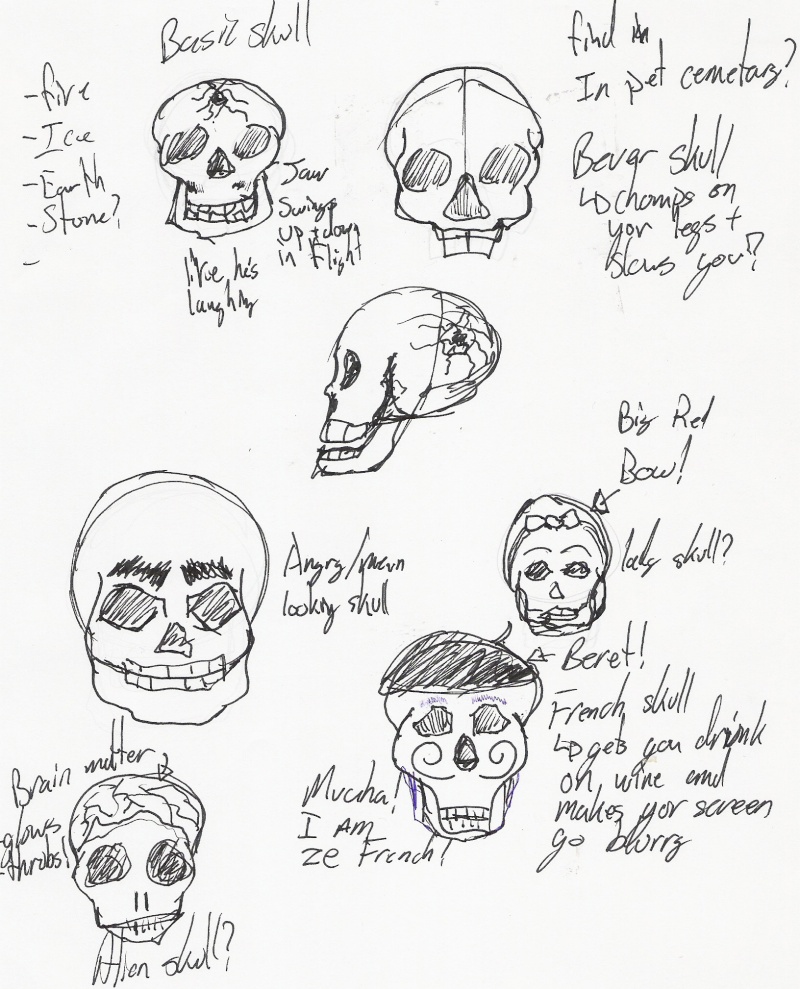 Basic skull
-fire
-Ice
-Earth
-Stone?
-
Jaw
Swings
up + down
in flight
like he's
laughing
find in
In pet cemetary?
Bever skull
↳ chomps on
yor legs +
slows you?
Big Red
Bow!
lady skull?
Angry/mean
looking skull
Beret!
French skull
↳ gets you drunk
on wine and
makes yor screen
go blurry
I AM
ze French!
Brain matter
-glows
-throbs!
Alien skull?